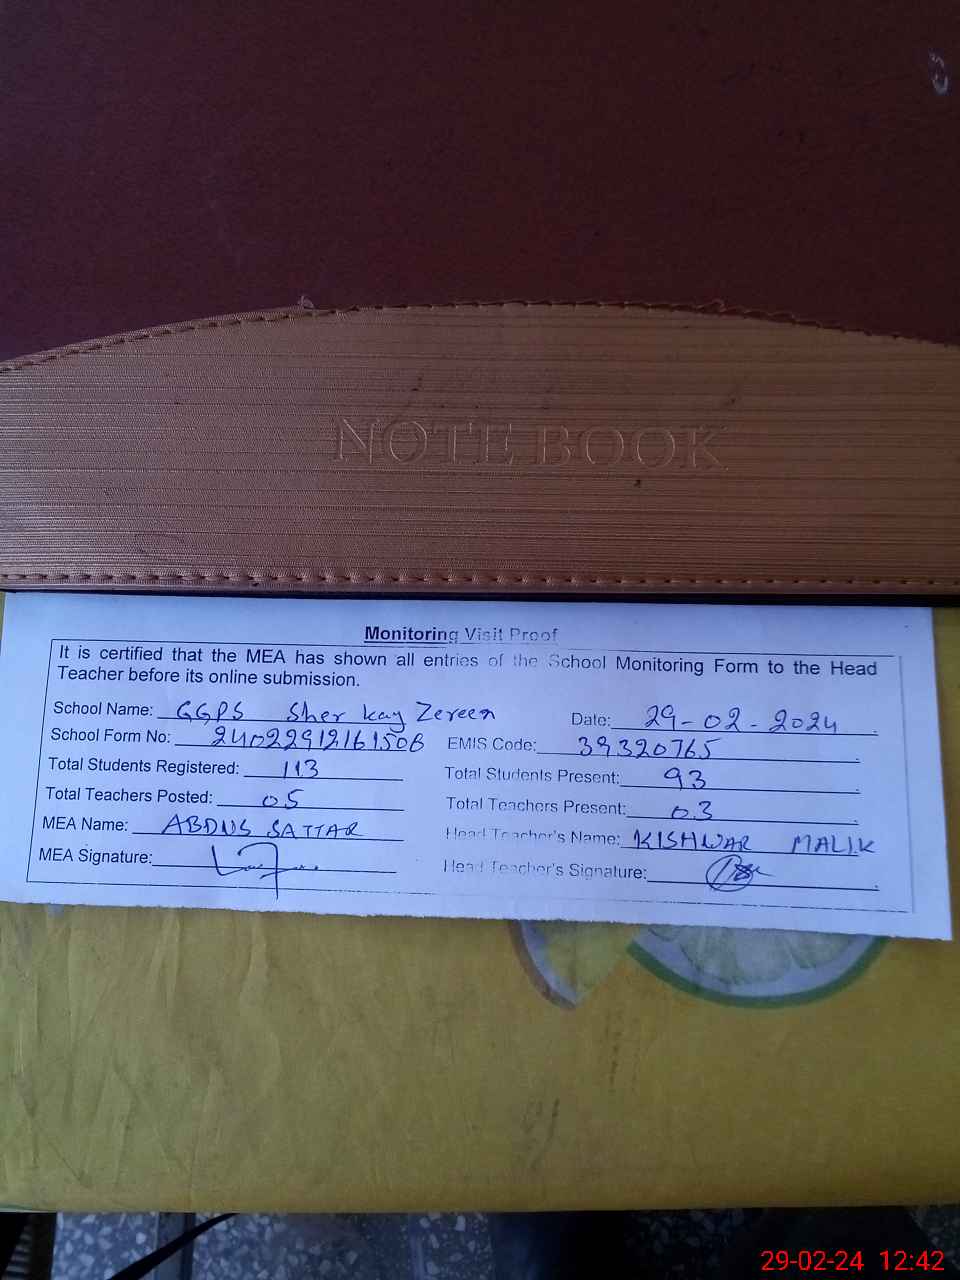 NOTE BOOK
Monitoring Visit Proof
It is certified that the MEA has shown all entries of the School Monitoring Form to the Head
Teacher before its online submission.
School Name: GGPS Sher kay Zereen Date: 29-02-2024
School Form No: 24022912161506 EMIS Code: 39320765
Total Students Registered: 113 Total Students Present: 93
Total Teachers Posted: 05 Total Teachers Present: 03
MEA Name: ABDUS SATTAR Head Teacher's Name: KISHWAR MALIK
MEA Signature: Head Teacher's Signature:
29-02-24 12:42